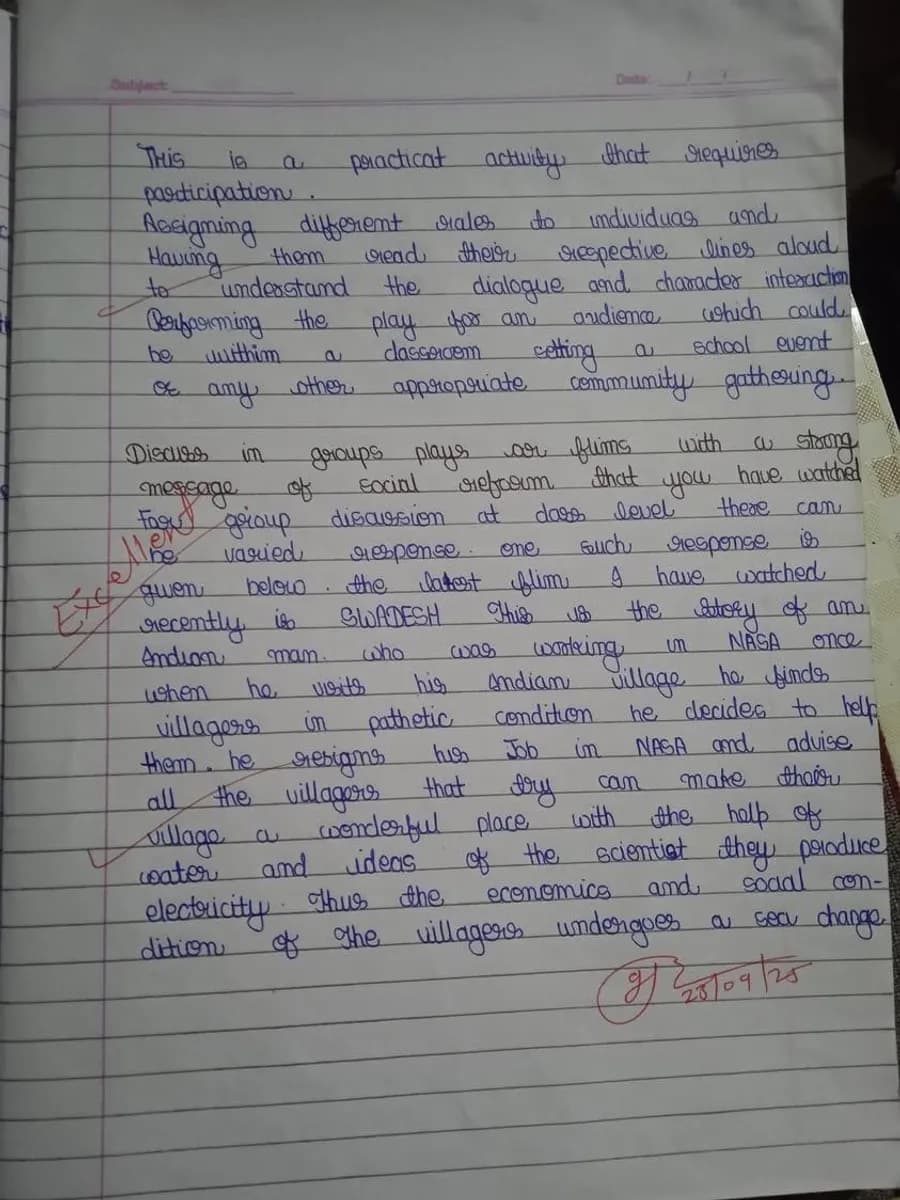 Subject
Date: / /
THis is a practicat activity that requires
participation.
Assigning different rales to individuas and
Having them read their respective lines aloud
to understand the dialogue and character interaction
Performing the play for an audience which could
be within a classroom setting a school event
or any other appropriate community gathering.
Discuss in groups plays or flims with a strong
message of social reform that you have watched
For group discussion at class level there can
be varied response. one such response is
Excellent
given below. the latest flim I have watched
recently is SWADESH This is the story of an
Indian man. who was working in NASA once
when he visits his Indian village he finds
villagers in pathetic condition he decides to help
them. he resigns his Job in NASA and advise
all the villagers that try can make thair
village a wonderful place with the halp of
water and ideas of the scientist they produce
electricity. Thus the economics and social con-
dition of the villagers undergoes a sea change
23/09/25